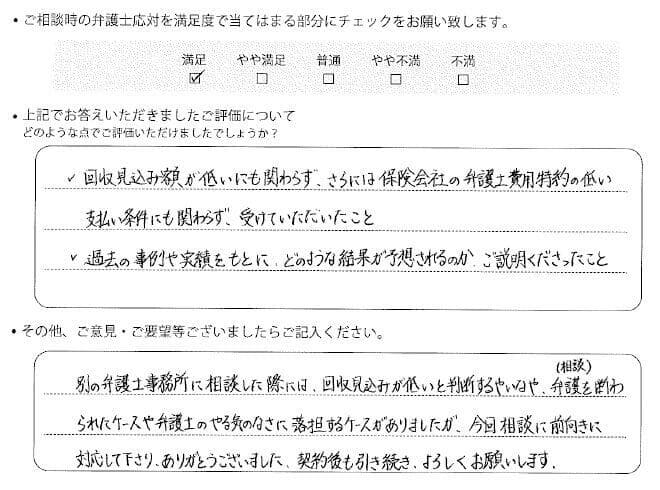 • ご相談時の弁護士応対を満足度で当てはまる部分にチェックをお願い致します。
満足 やや満足 普通 やや不満 不満
☑ ☐ ☐ ☐ ☐
• 上記でお答えいただきましたご評価について
どのような点でご評価いただけましたでしょうか？
✓ 回収見込み額が低いにも関わらず、さらには保険会社の弁護士費用特約の低い
支払い条件にも関わらず、受けていただいたこと
✓ 過去の事例や実績をもとに、どのような結果が予想されるのか、ご説明くださったこと
• その他、ご意見・ご要望等ございましたらご記入ください。
(相談)
別の弁護士事務所に相談した際には、回収見込みが低いと判断するやいなや、弁護を断わ
られたケースや弁護士のやる気のなさに落担するケースがありましたが、今回相談に前向きに
対応して下さり、ありがとうございました。契約後も引き続き、よろしくお願いします。